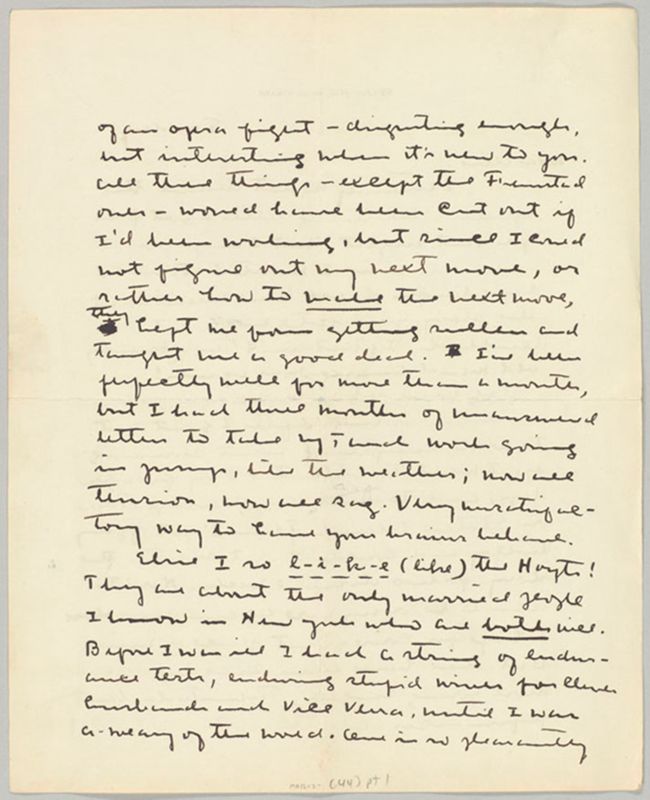 of an opera fight – disgusting enough,
but interesting when it's new to you.
All these things – except the Fremstad
ones – would have been cut out if
I'd been working, but since I could
not figure out my next move, or
rather how to make the next move,
they kept me from getting sullen and
taught me a good deal. I've been
perfectly well for more than a month,
but I had three months of unanswered
letters to take up, and work going
in jumps, like the weather; now all
tension, now all sag. Very unsatisfac-
tory way to have your brains behave.
Elsie I so l-i-k-e (like) the Hoyts!
They are about the only married people
I know in New York who are both nice.
Before I was ill I had a string of endur-
ance tests, enduring stupid wives for clever
husbands and Vice Versa, until I was
a-weary of the world. came in so pleasantly
(44) pt 1